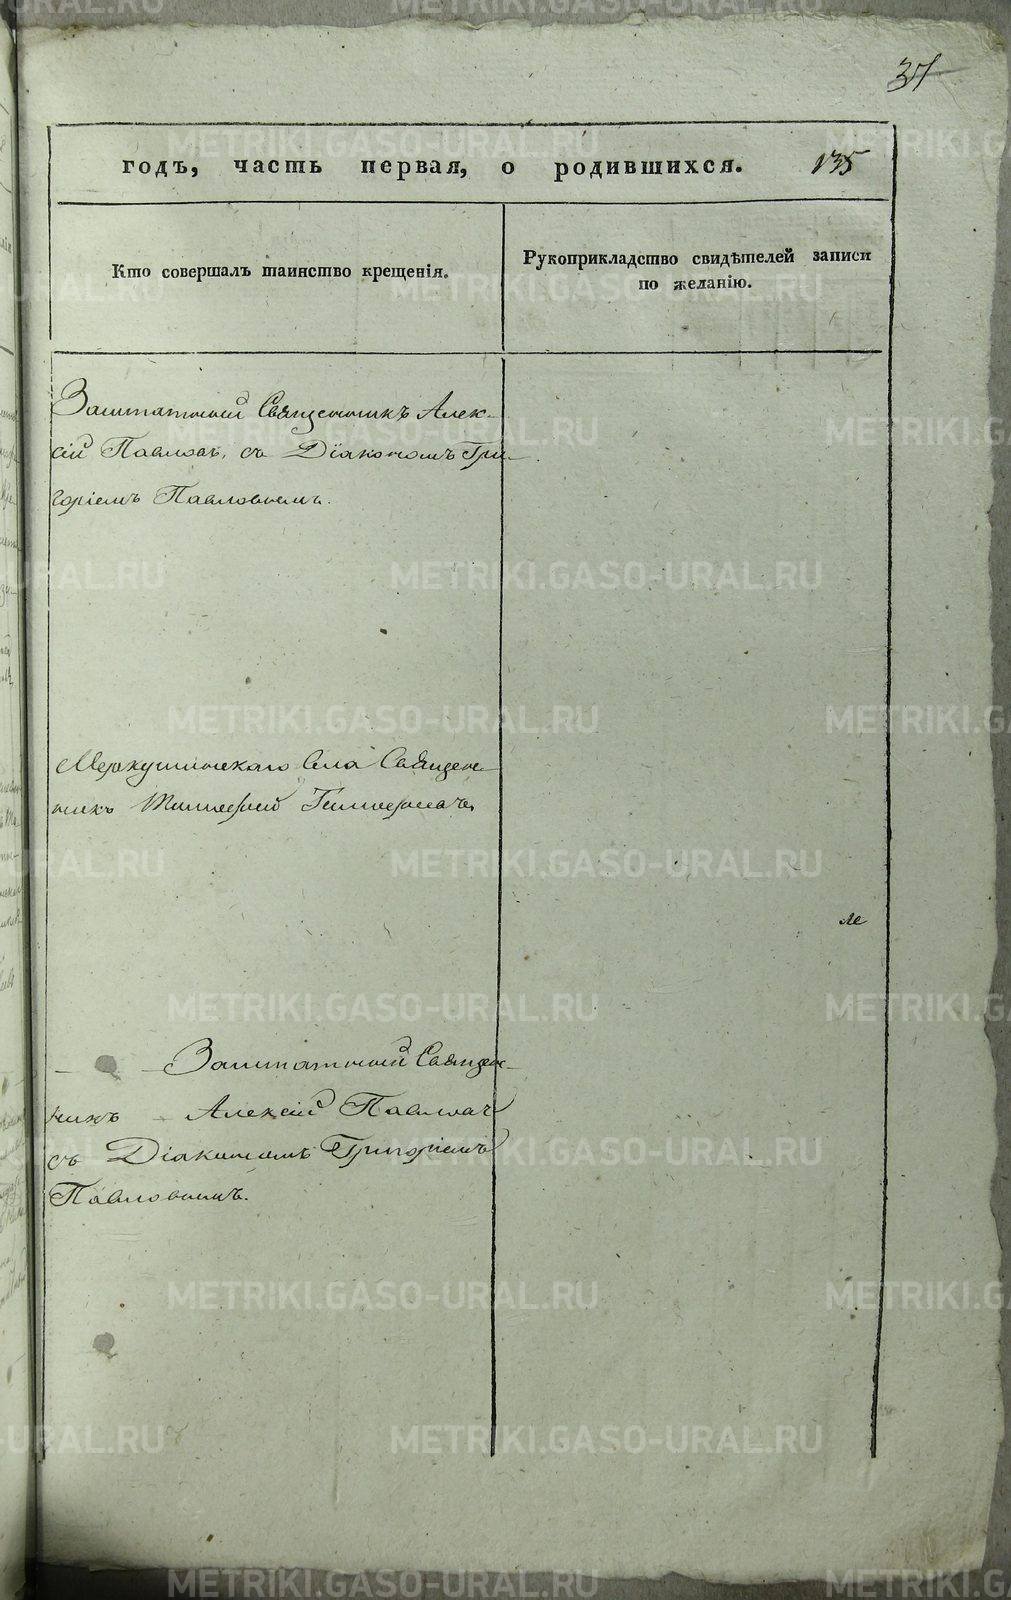 37
годъ, часть первая, о родившихся. 135
Кто совершалъ таинство крещенія.
Рукоприкладство свидѣтелей записи
по желанію.
Заштатный Священникъ Алек-
сій Павловъ, съ Діакономъ Гри-
горіемъ Павловымъ.
Меркушинскаго Села Священ-
никъ
Заштатный Священ-
никъ Алексій Павловъ
съ Діакономъ Григоріемъ
Павловымъ.
METRIKI.GASO-URAL.RU